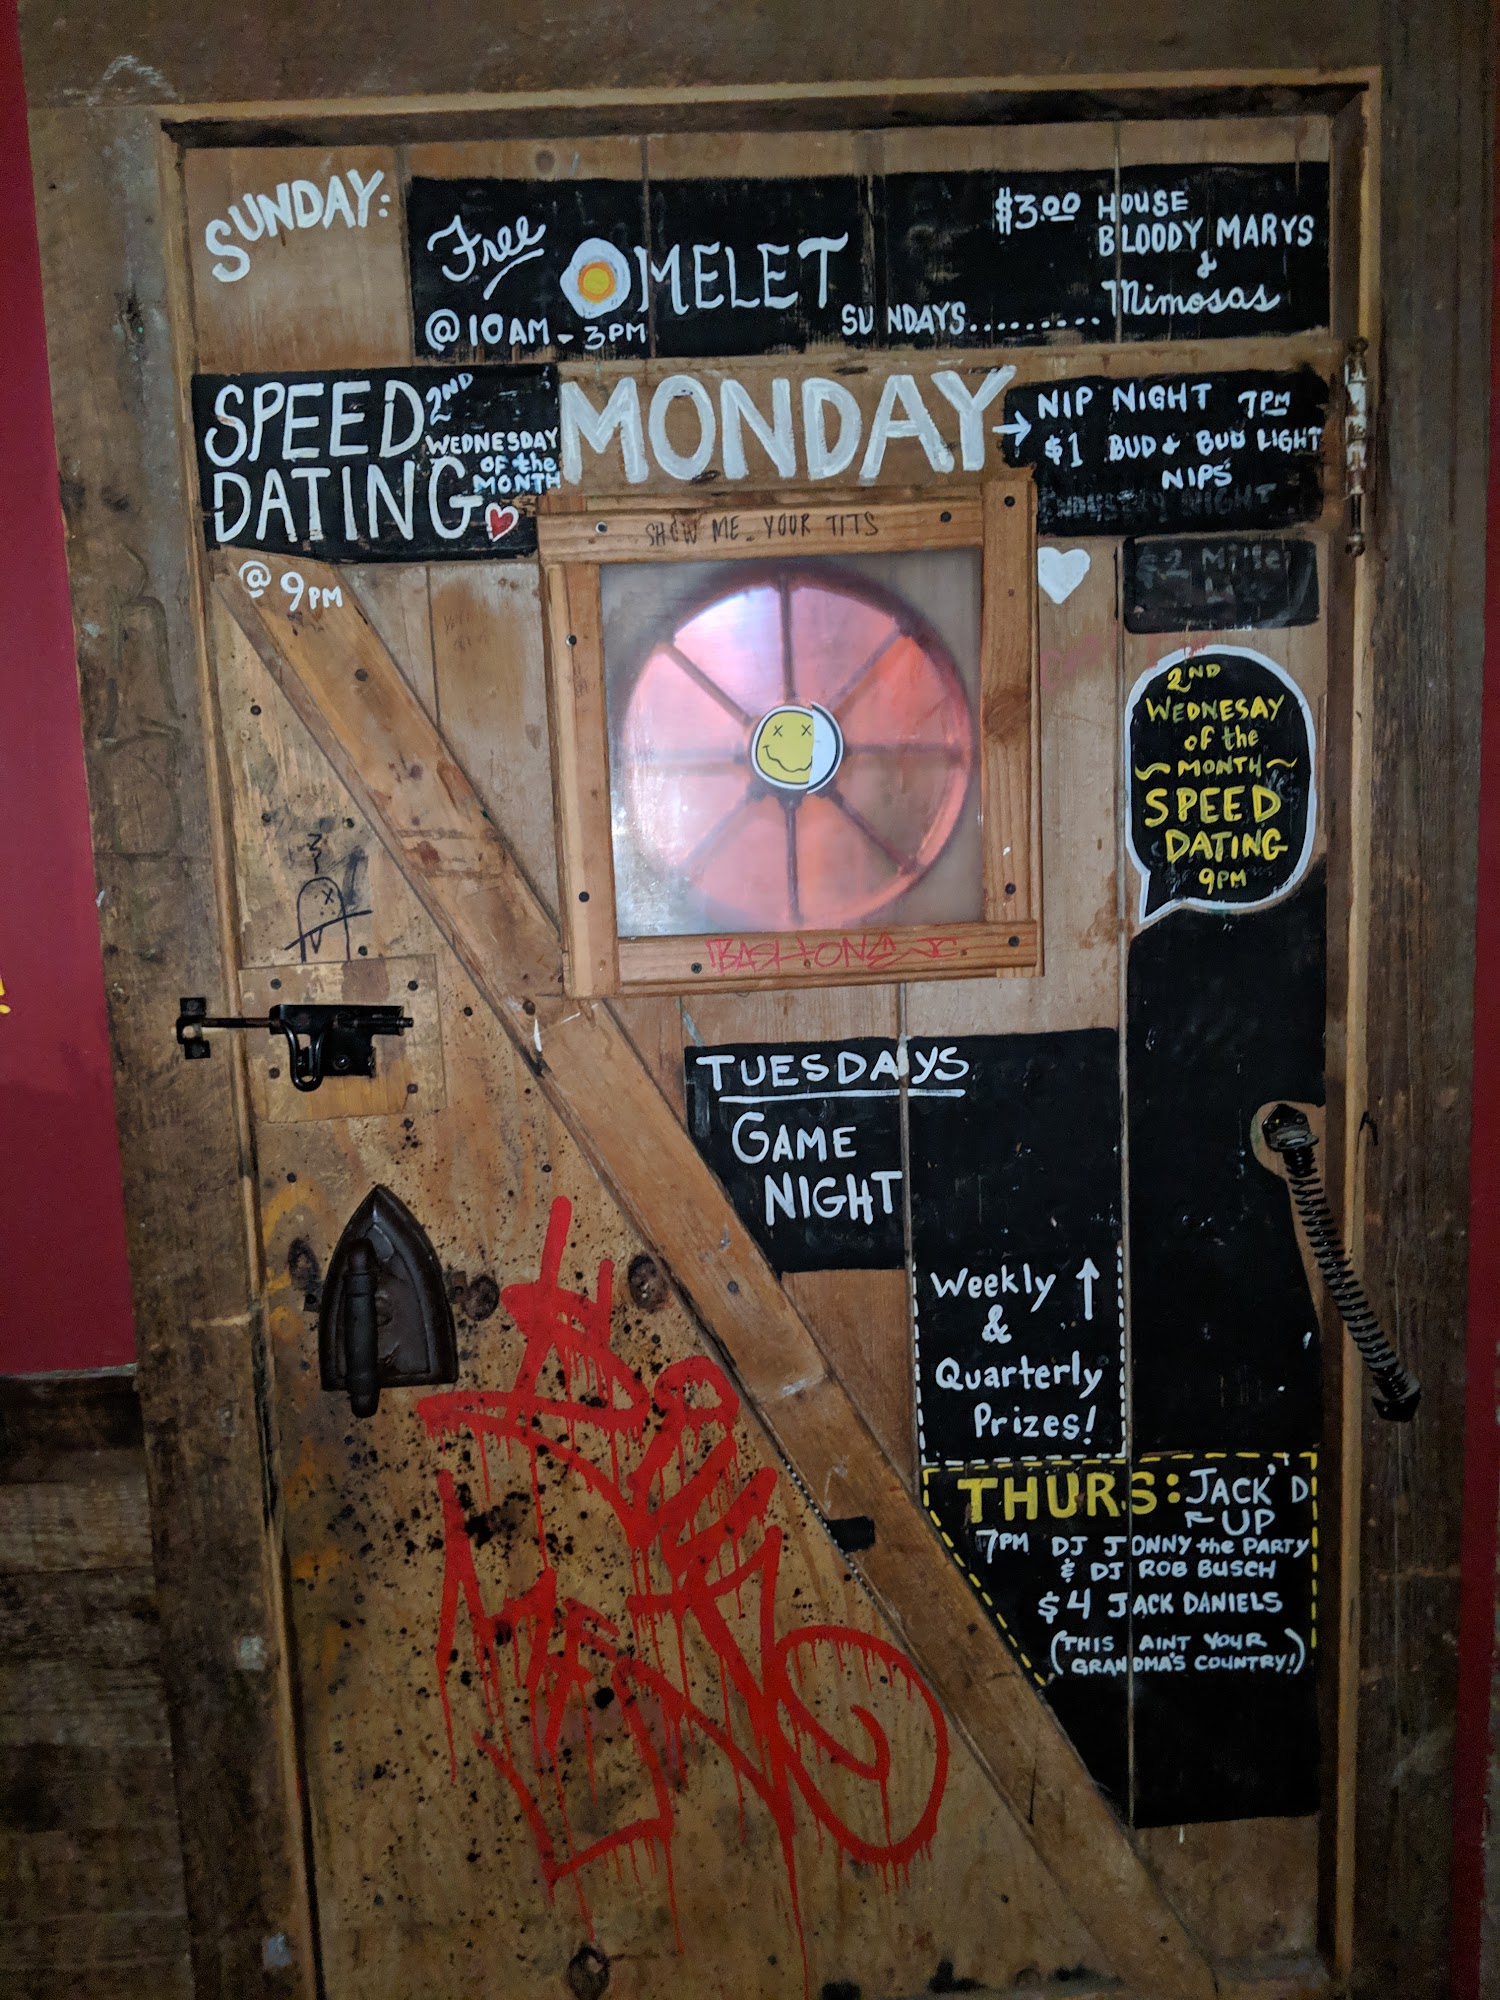 SUNDAY:
Free OMELET
@ 10AM - 3PM
SUNDAYS.........
$3.00 HOUSE
BLOODY MARYS
&
Mimosas
SPEED
DATING
2ND
WEDNESDAY
OF the
MONTH
@ 9PM
MONDAY
→ NIP NIGHT 7PM
$1 BUD & BUD LIGHT
NIPS
INDUSTRY NIGHT
SHOW ME YOUR TITS
$2 Miller
2ND
WEDNESAY
of the
~ MONTH ~
SPEED
DATING
9PM
TUESDAYS
GAME
NIGHT
Weekly ↑
&
Quarterly
Prizes!
THURS: JACK'D
UP
7PM DJ JONNY the PARTY
& DJ ROB BUSCH
$4 JACK DANIELS
(THIS AINT YOUR
GRANDMA'S COUNTRY!)